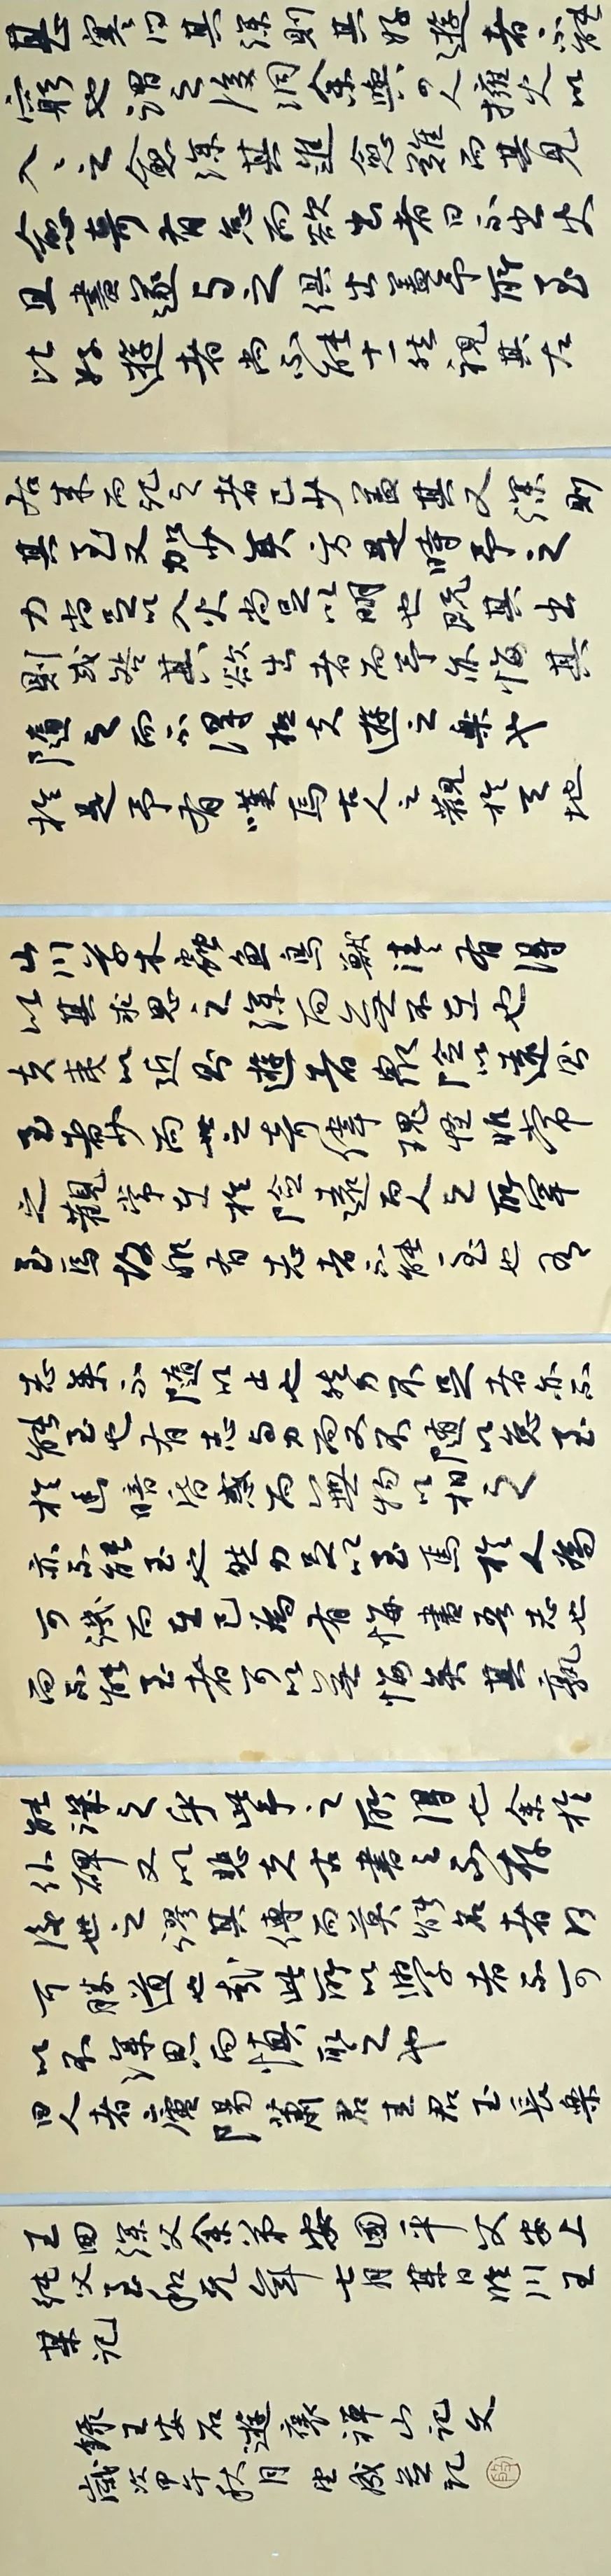 甚寒问其深則其好遊者不能
窮也謂之後洞余與四人擁火以
入入之愈深其進愈難而其見
愈奇有怠而欲出者曰不出火
且盡遂与之俱出蓋予所至
比好遊者尚不能十一然視其左
右来而記之者已少蓋其又深則
其至又加少矣方是時予之
力尚足以入火尚足以明也既其出
則或咎其欲出者而予亦悔其
隨之而不得極夫遊之樂也
於是予有嘆焉古人之觀於天地
山川草木蟲魚鳥獸往往有得
以其求思之深而無不在也
夫夷以近則遊者眾險以遠則
至者少而世之奇偉瑰怪非常
之觀常在於險遠而人之所罕
至焉故非有志者不能至也有
志矣不隨以止也然力不足者亦不
能至也有志与力而又不隨以怠至
於幽暗昏惑而無物以相之
亦不能至也然力足以至焉於人為
可譏而在己為有悔盡吾志也
而不能至者可以無悔矣其孰
能譏之乎此予之所得也余於
仆碑又以悲夫古書之不存
後世之謬其傳而莫能名者何
可勝道也哉此所以學者不可
以不深思而慎取之也
四人者廬陽蕭君圭君玉長樂
王回深父余弟安國平父安上
純父至和元年七月某日臨川王
某記
錄王安石遊褒禪山記文
歲次甲午秋月